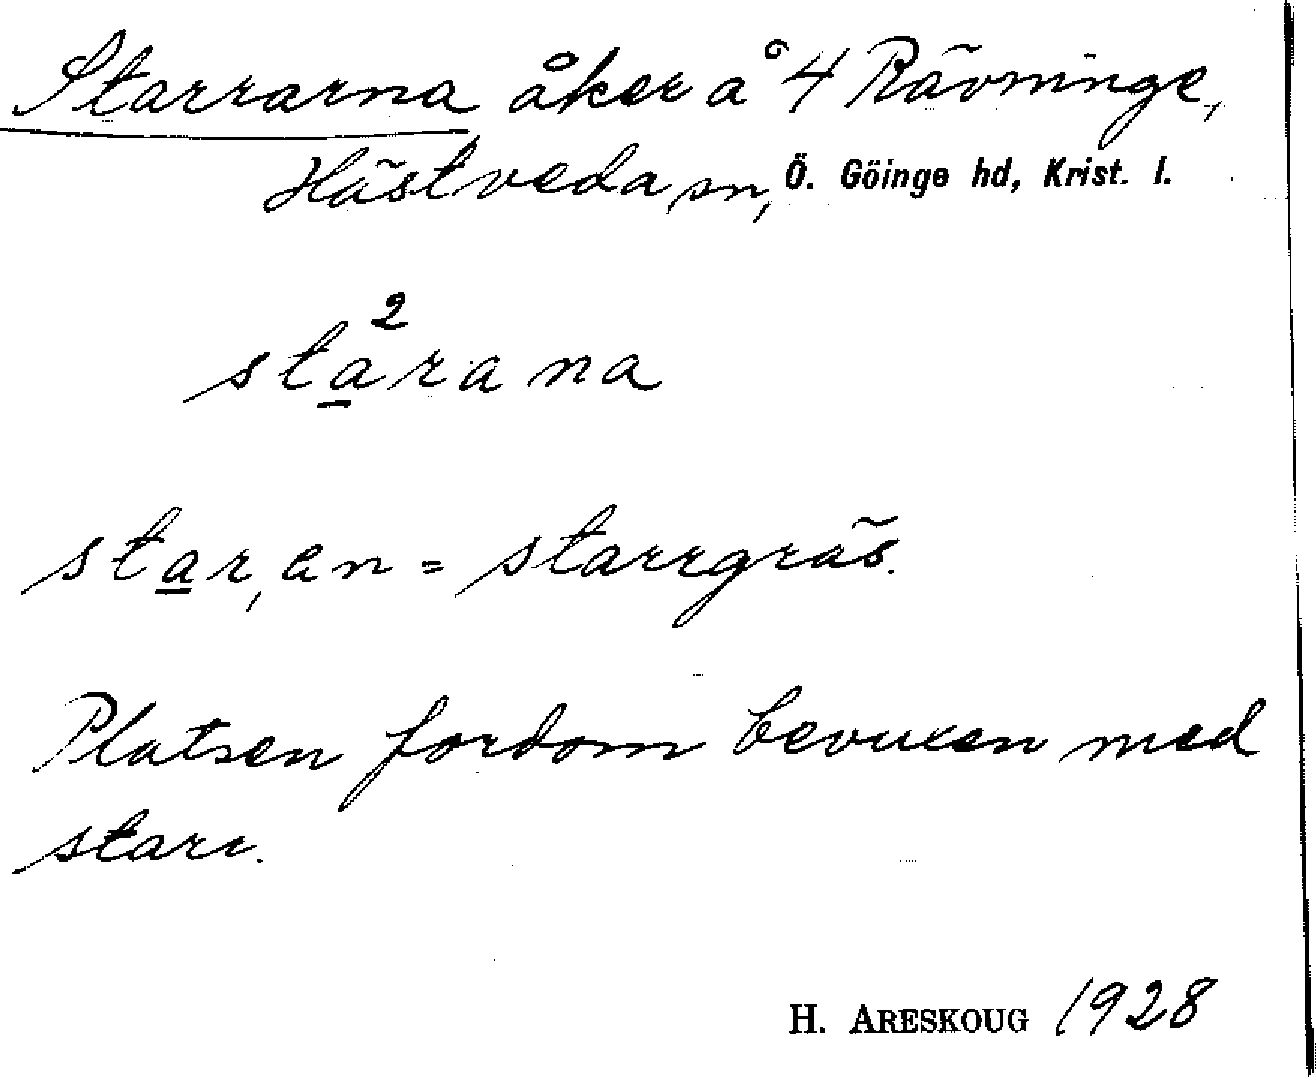 Starrarna åker å 4 Rävninge,
Hästveda sn, Ö. Göinge hd, Krist. l.
2
starana
star, en = starrgräs.
Platsen fordom bevuxen med
starr.
H. ARESKOUG 1928